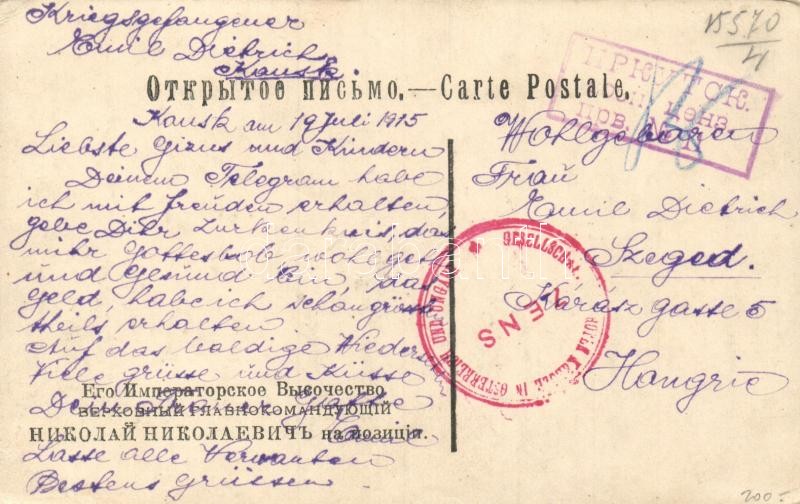 Kriegsgefangener
Emil Dietrich
Kansk.
15570
4
Открытое письмо.—Carte Postale.
ИРКУТСК.
воен. ценз
пров. №
Kansk am 19 Juli 1915
Liebste Gizus und Kindern
Deinem Telegram habe
ich mit freuden erhalten,
gebe Dihr zur kentnis, das
mihr Gottes lob wohl geht
und gesund bin, das
geld, habe ich schon gröss
theils erhalten
Auf das baldige Wieders.
Viele grüsse und Küsse
Dein
Emil
Lasse alle Verwanten
Bestens Grüssen
Wohlgeboren
Frau
Emil Dietrich
Szeged.
Karasz gasse 5
Hongrie
GESELLSCHAFT
ROTEN KREUZE IN ÖSTERREICH UND UNGARN
WIENS
Его Императорское Высочество
ВЕРХОВНЫЙ ГЛАВНОКОМАНДУЮЩІЙ
НИКОЛАЙ НИКОЛАЕВИЧЪ на позиціи.
darabanth
200-